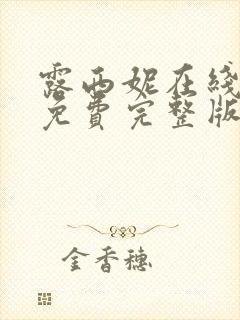 露西妮在线
免费完整版
金香穗